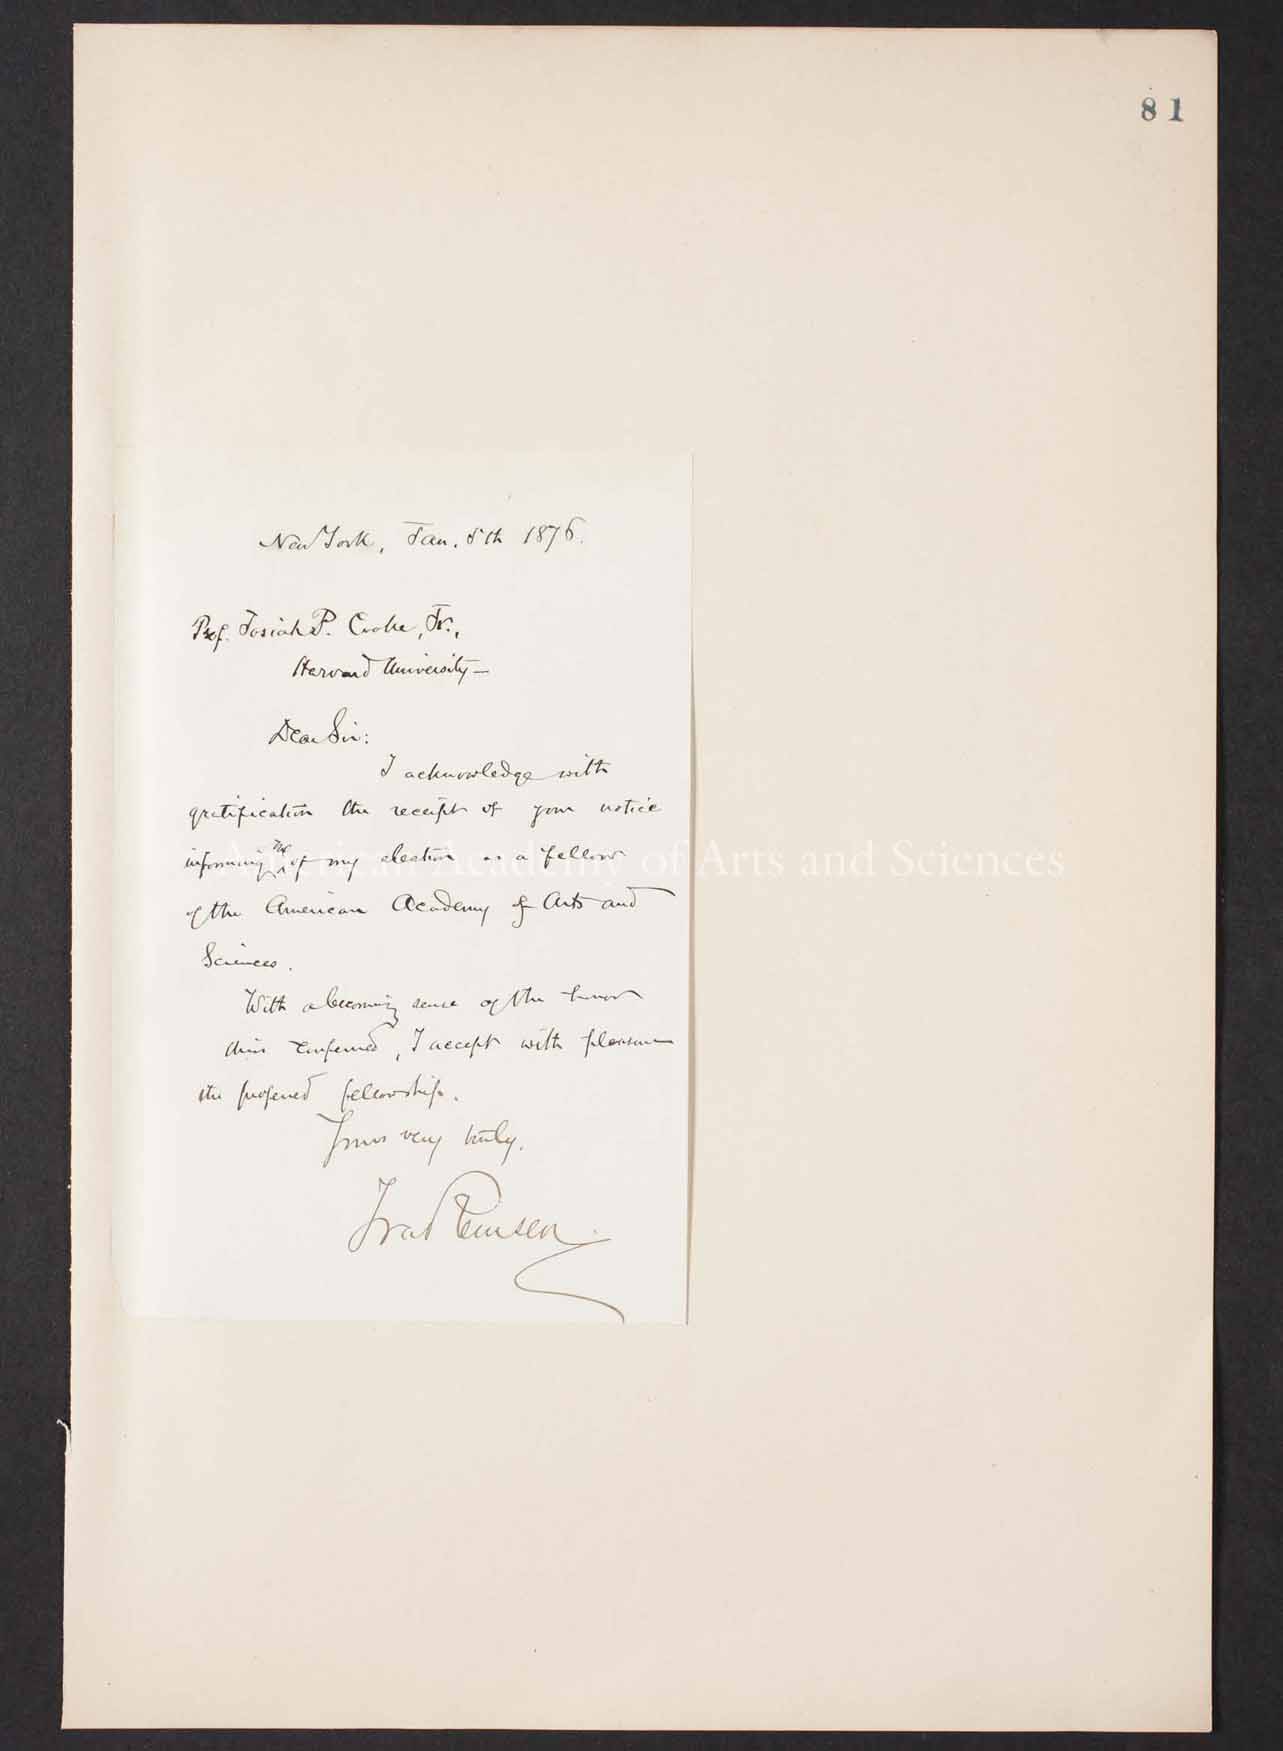 81
New York, Jan. 5th 1876.
Prof. Josiah P. Cooke, Jr.,
Harvard University—
Dear Sir:
I acknowledge with
gratification the receipt of your notice
informing me of my election as a fellow
of the American Academy of Arts and
Sciences.
With a becoming sense of the honor
thus conferred, I accept with pleasure
the proffered fellowship.
Yours very truly,
Ira Remsen.
American Academy of Arts and Sciences